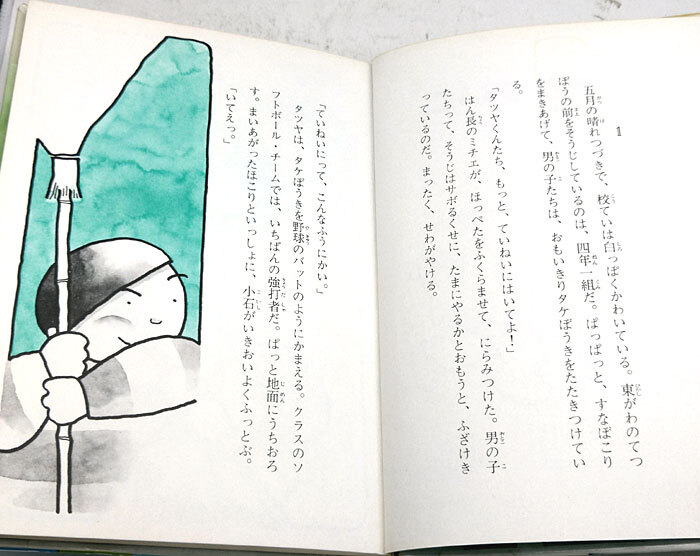 1
五月の晴れつづきで、校ていは白っぽくかわいている。東がわのてつ
ぼうの前をそうじしているのは、四年一組だ。ぱっぱっと、すなぼこり
をまきあげて、男の子たちは、おもいきりタケぼうきをたたきつけてい
る。
「タツヤくんたち、もっと、ていねいにはいてよ！」
はん長のミチエが、ほっぺたをふくらませて、にらみつけた。男の子
たちって、そうじはサボるくせに、たまにやるかとおもうと、ふざけき
っているのだ。まったく、せわがやける。
「ていねいにって、こんなふうにかい。」
タツヤは、タケぼうきを野球のバットのようにかまえる。クラスのソ
フトボール・チームでは、いちばんの強打者だ。ぱっと地面にうちおろ
す。まいあがったほこりといっしょに、小石がいきおいよくふっとぶ。
「いてえっ。」